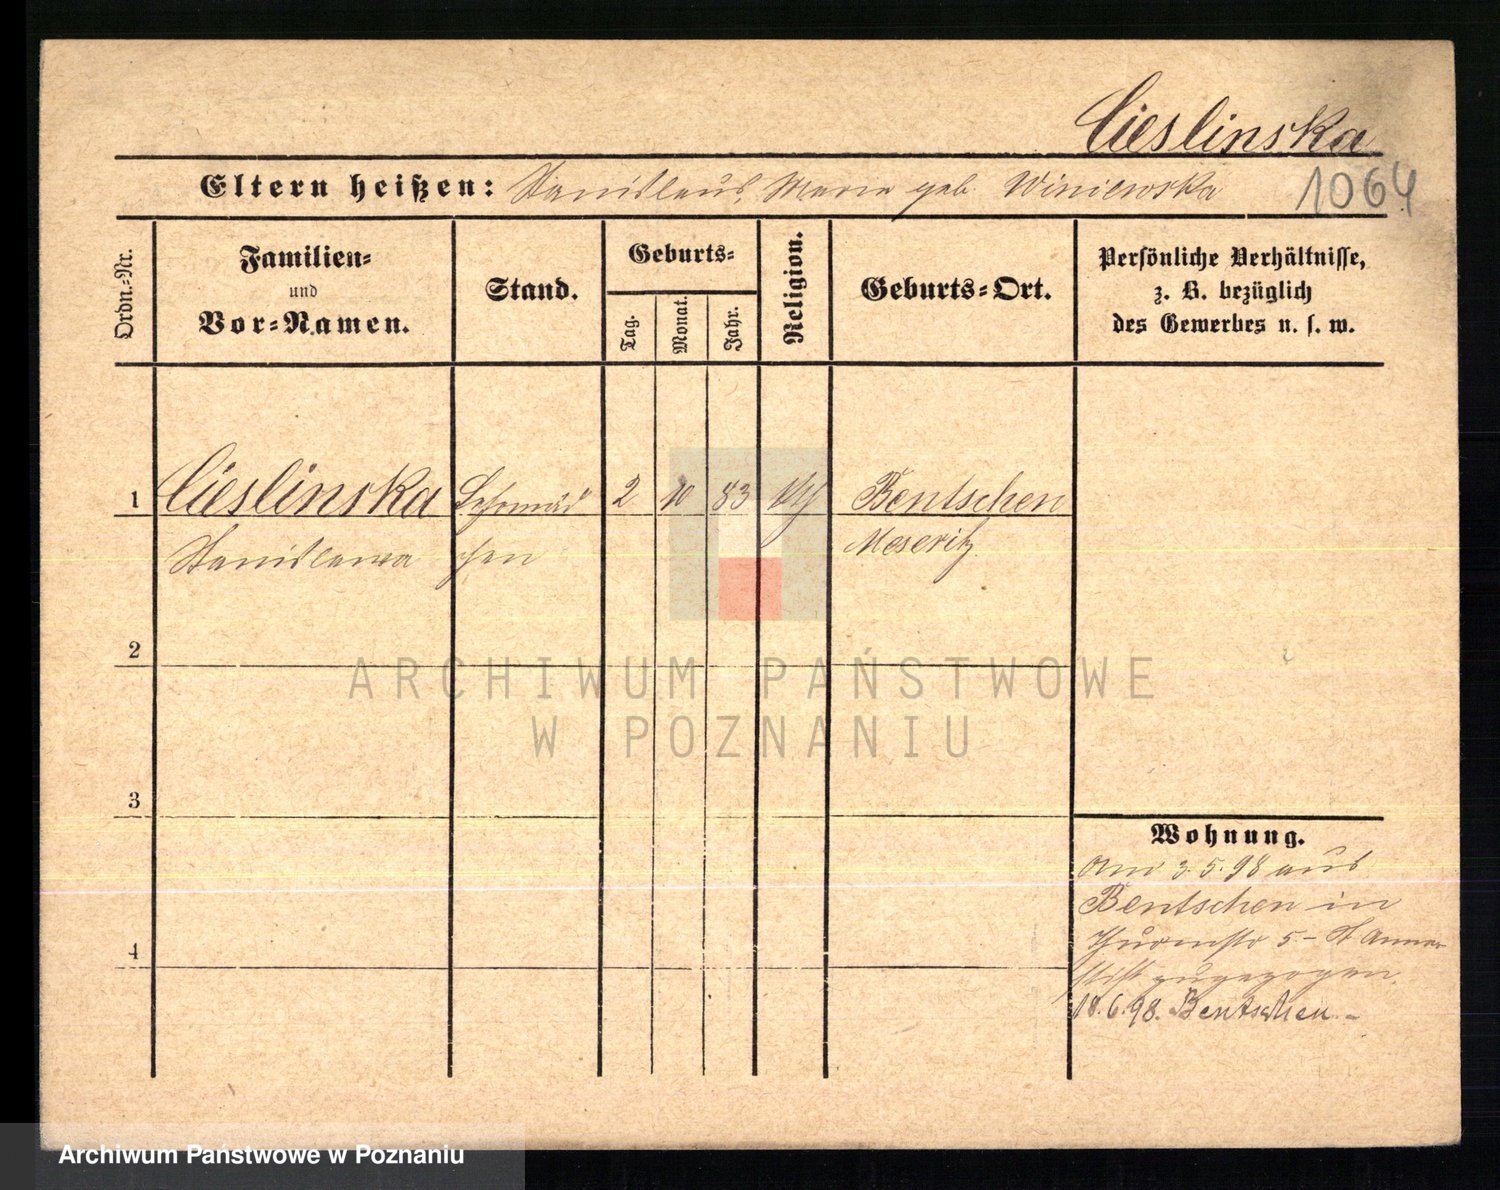 Cieslinska
Eltern heißen: Stanislaus, Maria geb. Winiewska 1064
Ordn.-Nr.
Familien-
und
Vor-Namen.
Stand.
Geburts-
Tag.
Monat.
Jahr.
Religion.
Geburts-Ort.
Persönliche Verhältnisse,
z. B. bezüglich
des Gewerbes u. s. w.
1 Cieslinska 2 10 83 kth Bentschen
Stanislawa chen Meseritz
2
3
4
Wohnung.
Am 3.5.98 aus
Bentschen in
Thurmstr 5 - St Annen
stift zugezogen.
18.6.98. Bentschen. -
ARCHIWUM PAŃSTWOWE
W POZNANIU
Archiwum Państwowe w Poznaniu